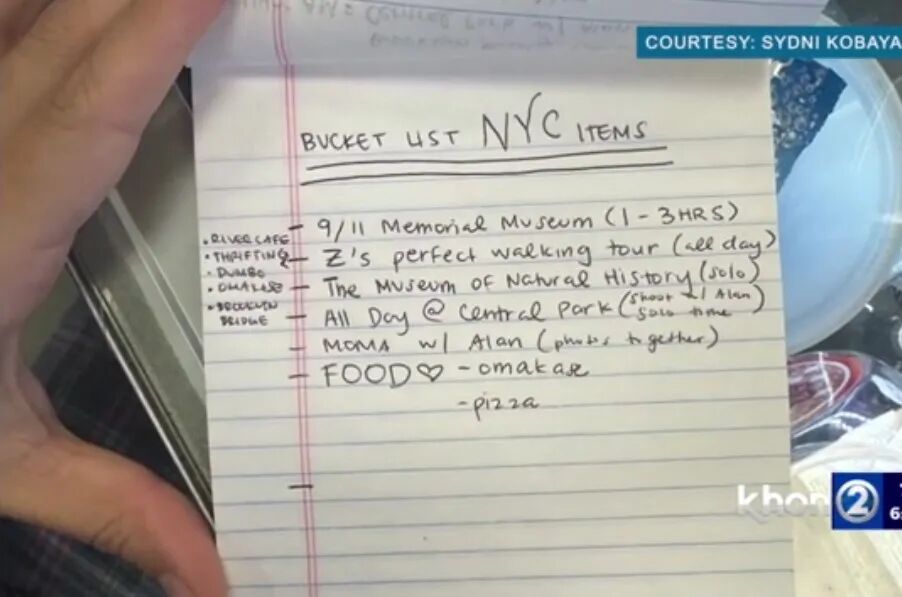 COURTESY: SYDNI KOBAYA
BUCKET LIST NYC ITEMS
- 9/11 Memorial Museum (1-3HRS)
- Z's perfect walking tour (all day)
• RIVER CAFE
• THRIFTING
• DUMBO
• OMAKASE
• BROOKLYN
BRIDGE
- The Museum of Natural History (solo)
- All Day @ Central Park (shoot w/ Alan)
solo time
- MOMA w/ Alan (photos together)
- FOOD♡ - omakase
- pizza
-
khon 2